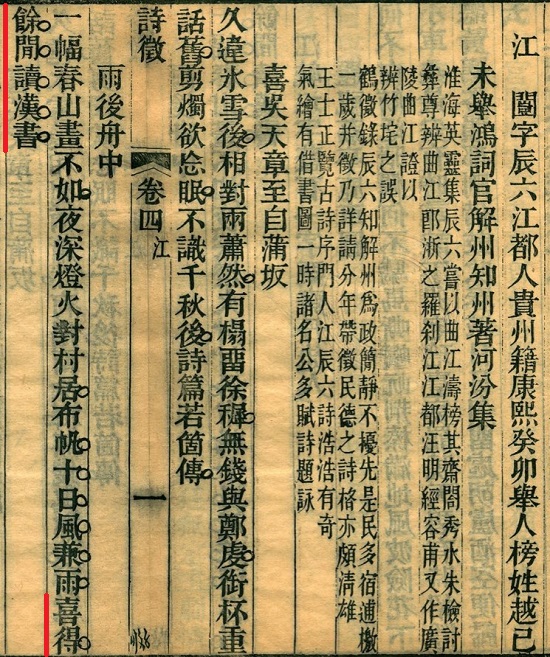 江　闓字辰六江都人貴州籍康熙癸卯舉人榜姓越己
未舉鴻詞官解州知州著河汾集
淮海英靈集辰六嘗以曲江濤榜其齋間秀水朱檢討
彝尊辨曲江卽浙之羅刹江江都汪明經容甫又作廣
陵曲江證以
辨竹垞之誤
鶴徵錄辰六知解州爲政簡靜不擾先是民多宿逋檄
一歲并徵乃詳請分年帶徵民德之詩格亦頗清雄
王士正覽古詩序門人江辰六詩浩浩有奇
氣繪有借書圖一時諸名公多賦詩題詠
喜吳天章至自蒲坂
久違氷雪後相對雨蕭然有榻畱徐穉無錢與鄭虔銜杯重
話舊剪燭欲忘眠不識千秋後詩篇若箇傳
詩徵　卷四　江　一
雨後舟中
一幅春山畫不如夜深燈火對村居布帆十日風兼雨喜得
餘閒讀漢書